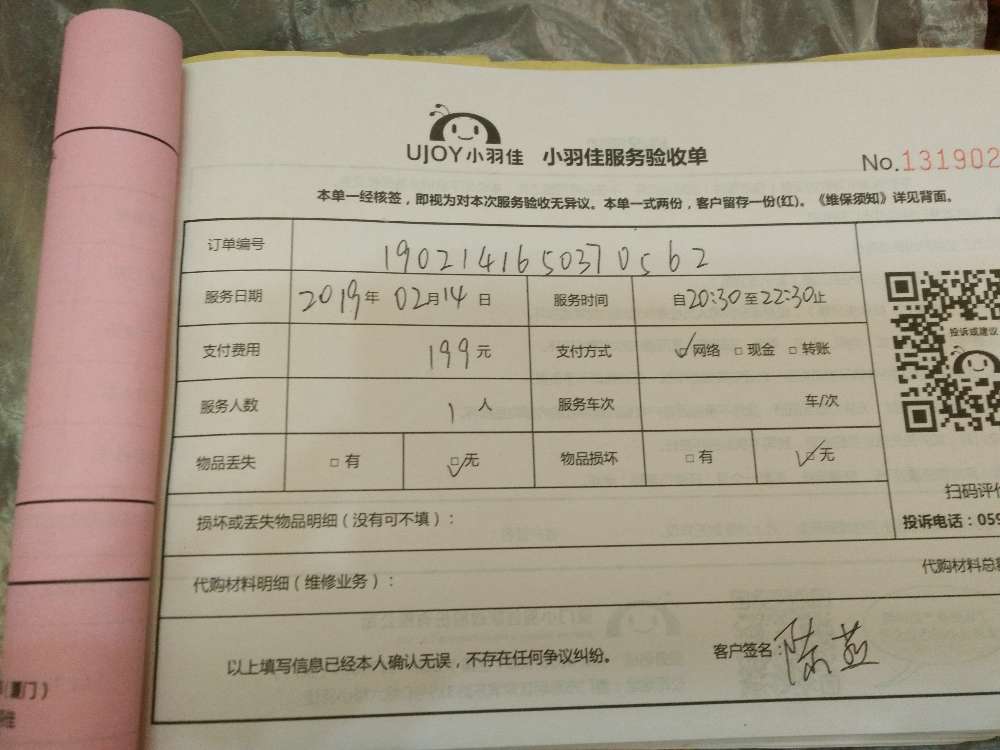 UJOY小羽佳 小羽佳服务验收单
No.131902
本单一经核签，即视为对本次服务验收无异议。本单一式两份，客户留存一份(红)。《维保须知》详见背面。
订单编号 190214165037 0562
服务日期 2019年 02月14日 服务时间 自20:30至22:30止
投诉或建议
支付费用 199元 支付方式 ☑网络 □现金 □转账
服务人数 1人 服务车次 车/次
物品丢失 □有 ☑无 物品损坏 □有 ☑无
扫码评价
损坏或丢失物品明细（没有可不填）：
投诉电话：059
代购材料明细（维修业务）：
代购材料总额
以上填写信息已经本人确认无误，不存在任何争议纠纷。 客户签名：陈燕
厦门）